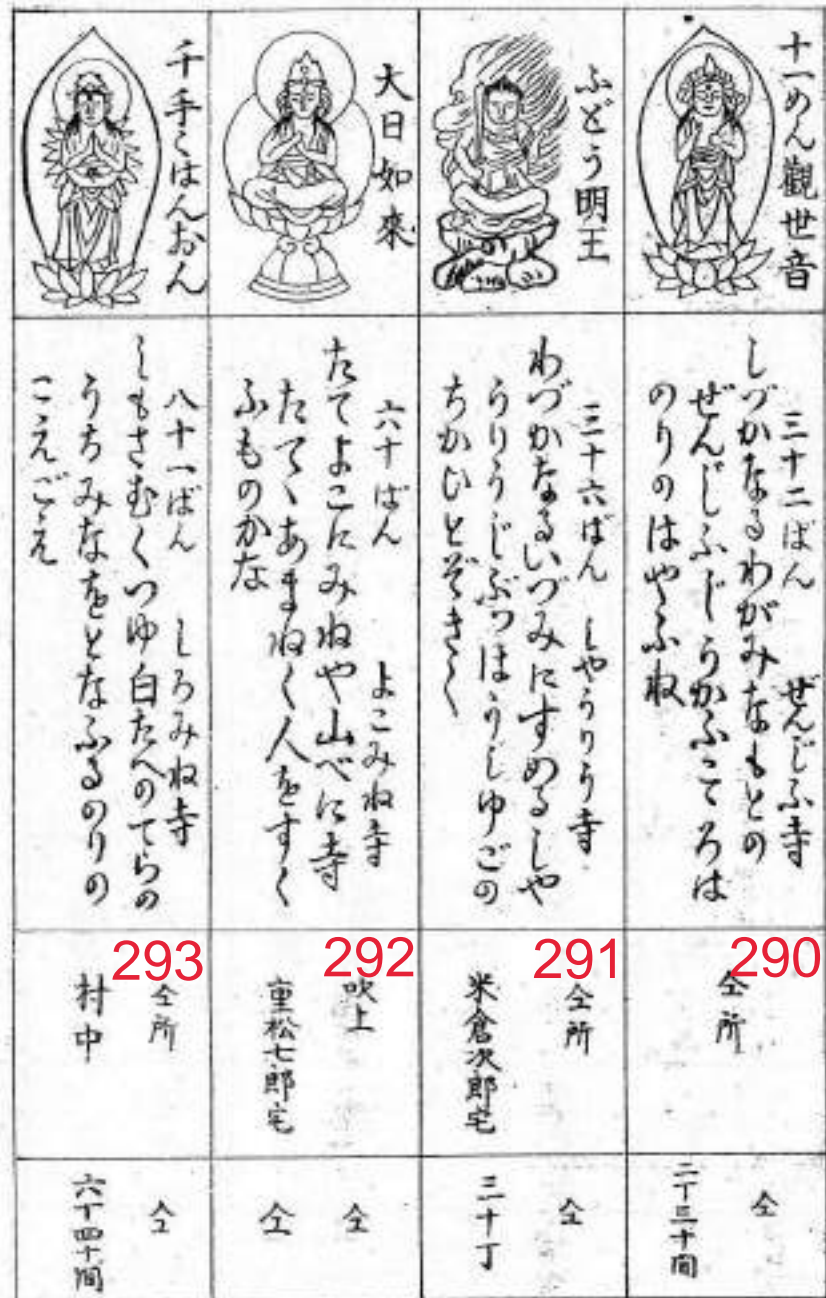 十一めん觀世音
三十二ばん　ぜんじふ寺
しづかなるわがみなもとの
ぜんじふじうかふこころは
のりのはやふね
290
仝所
仝
二丁三十間
ふどう明王
三十六ばん　しやうりう寺
わづかなるいづみにすめるしや
うりうじぶつほうしゆごの
ちかひとぞきく
291
仝所
米倉次郎宅
仝
三十丁
大日如來
六十ばん　よこみね寺
たてよこにみねや山べに寺
たてゝあまねく人をすく
ふものかな
292
吹上
重松七郎宅
仝
仝
千手くはんおん
八十一ばん　しろみね寺
しもさむくつゆ白たへのてらの
うちみなをとなふるのりの
こえごえ
293
仝所
村中
仝
六丁四十間